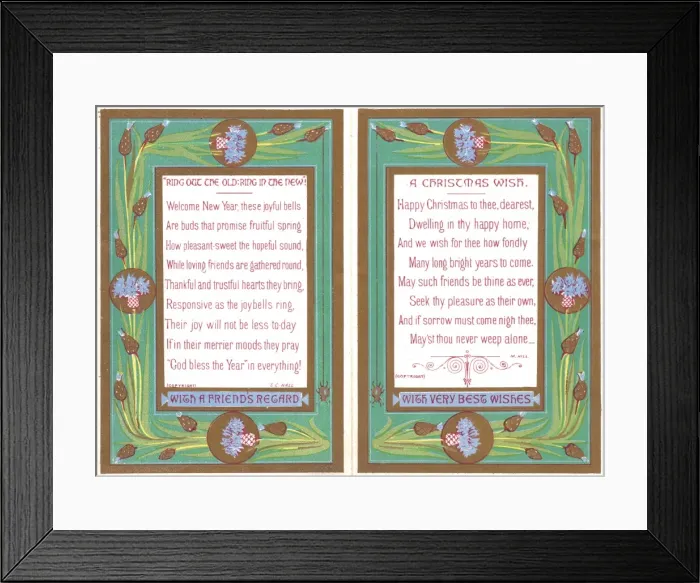 "RING OUT THE OLD: RING IN THE NEW"!
Welcome New Year, these joyful bells
Are buds that promise fruitful spring
How pleasant-sweet the hopeful sound,
While loving friends are gathered round,
Thankful and trustful hearts they bring,
Responsive as the joybells ring,
Their joy will not be less to-day
If in their merrier moods they pray
"God bless the Year" in everything!
(COPYRIGHT)
S. C. HALL.
WITH A FRIENDS REGARD
A CHRISTMAS WISH.
Happy Christmas to thee, dearest,
Dwelling in thy happy home,
And we wish for thee how fondly
Many long bright years to come.
May such friends be thine as ever,
Seek thy pleasure as their own,
And if sorrow must come nigh thee,
May'st thou never weep alone....
M. HILL.
(COPYRIGHT)
WITH VERY BEST WISHES